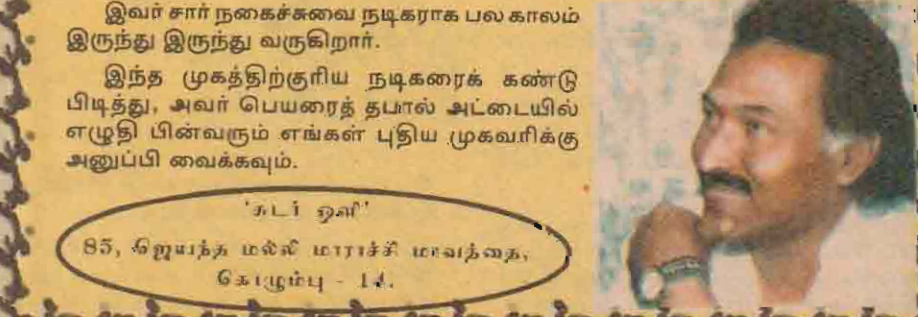 இவர் சார் நகைச்சுவை நடிகராக பல காலம்
இருந்து இருந்து வருகிறார்.
இந்த முகத்திற்குரிய நடிகரைக் கண்டு
பிடித்து, அவர் பெயரைத் தபால் அட்டையில்
எழுதி பின்வரும் எங்கள் புதிய முகவரிக்கு
அனுப்பி வைக்கவும்.
'சுடர் ஒளி'
85, ஜெயந்த மல்லி மாராச்சி மாவத்தை,
கொழும்பு - 14.